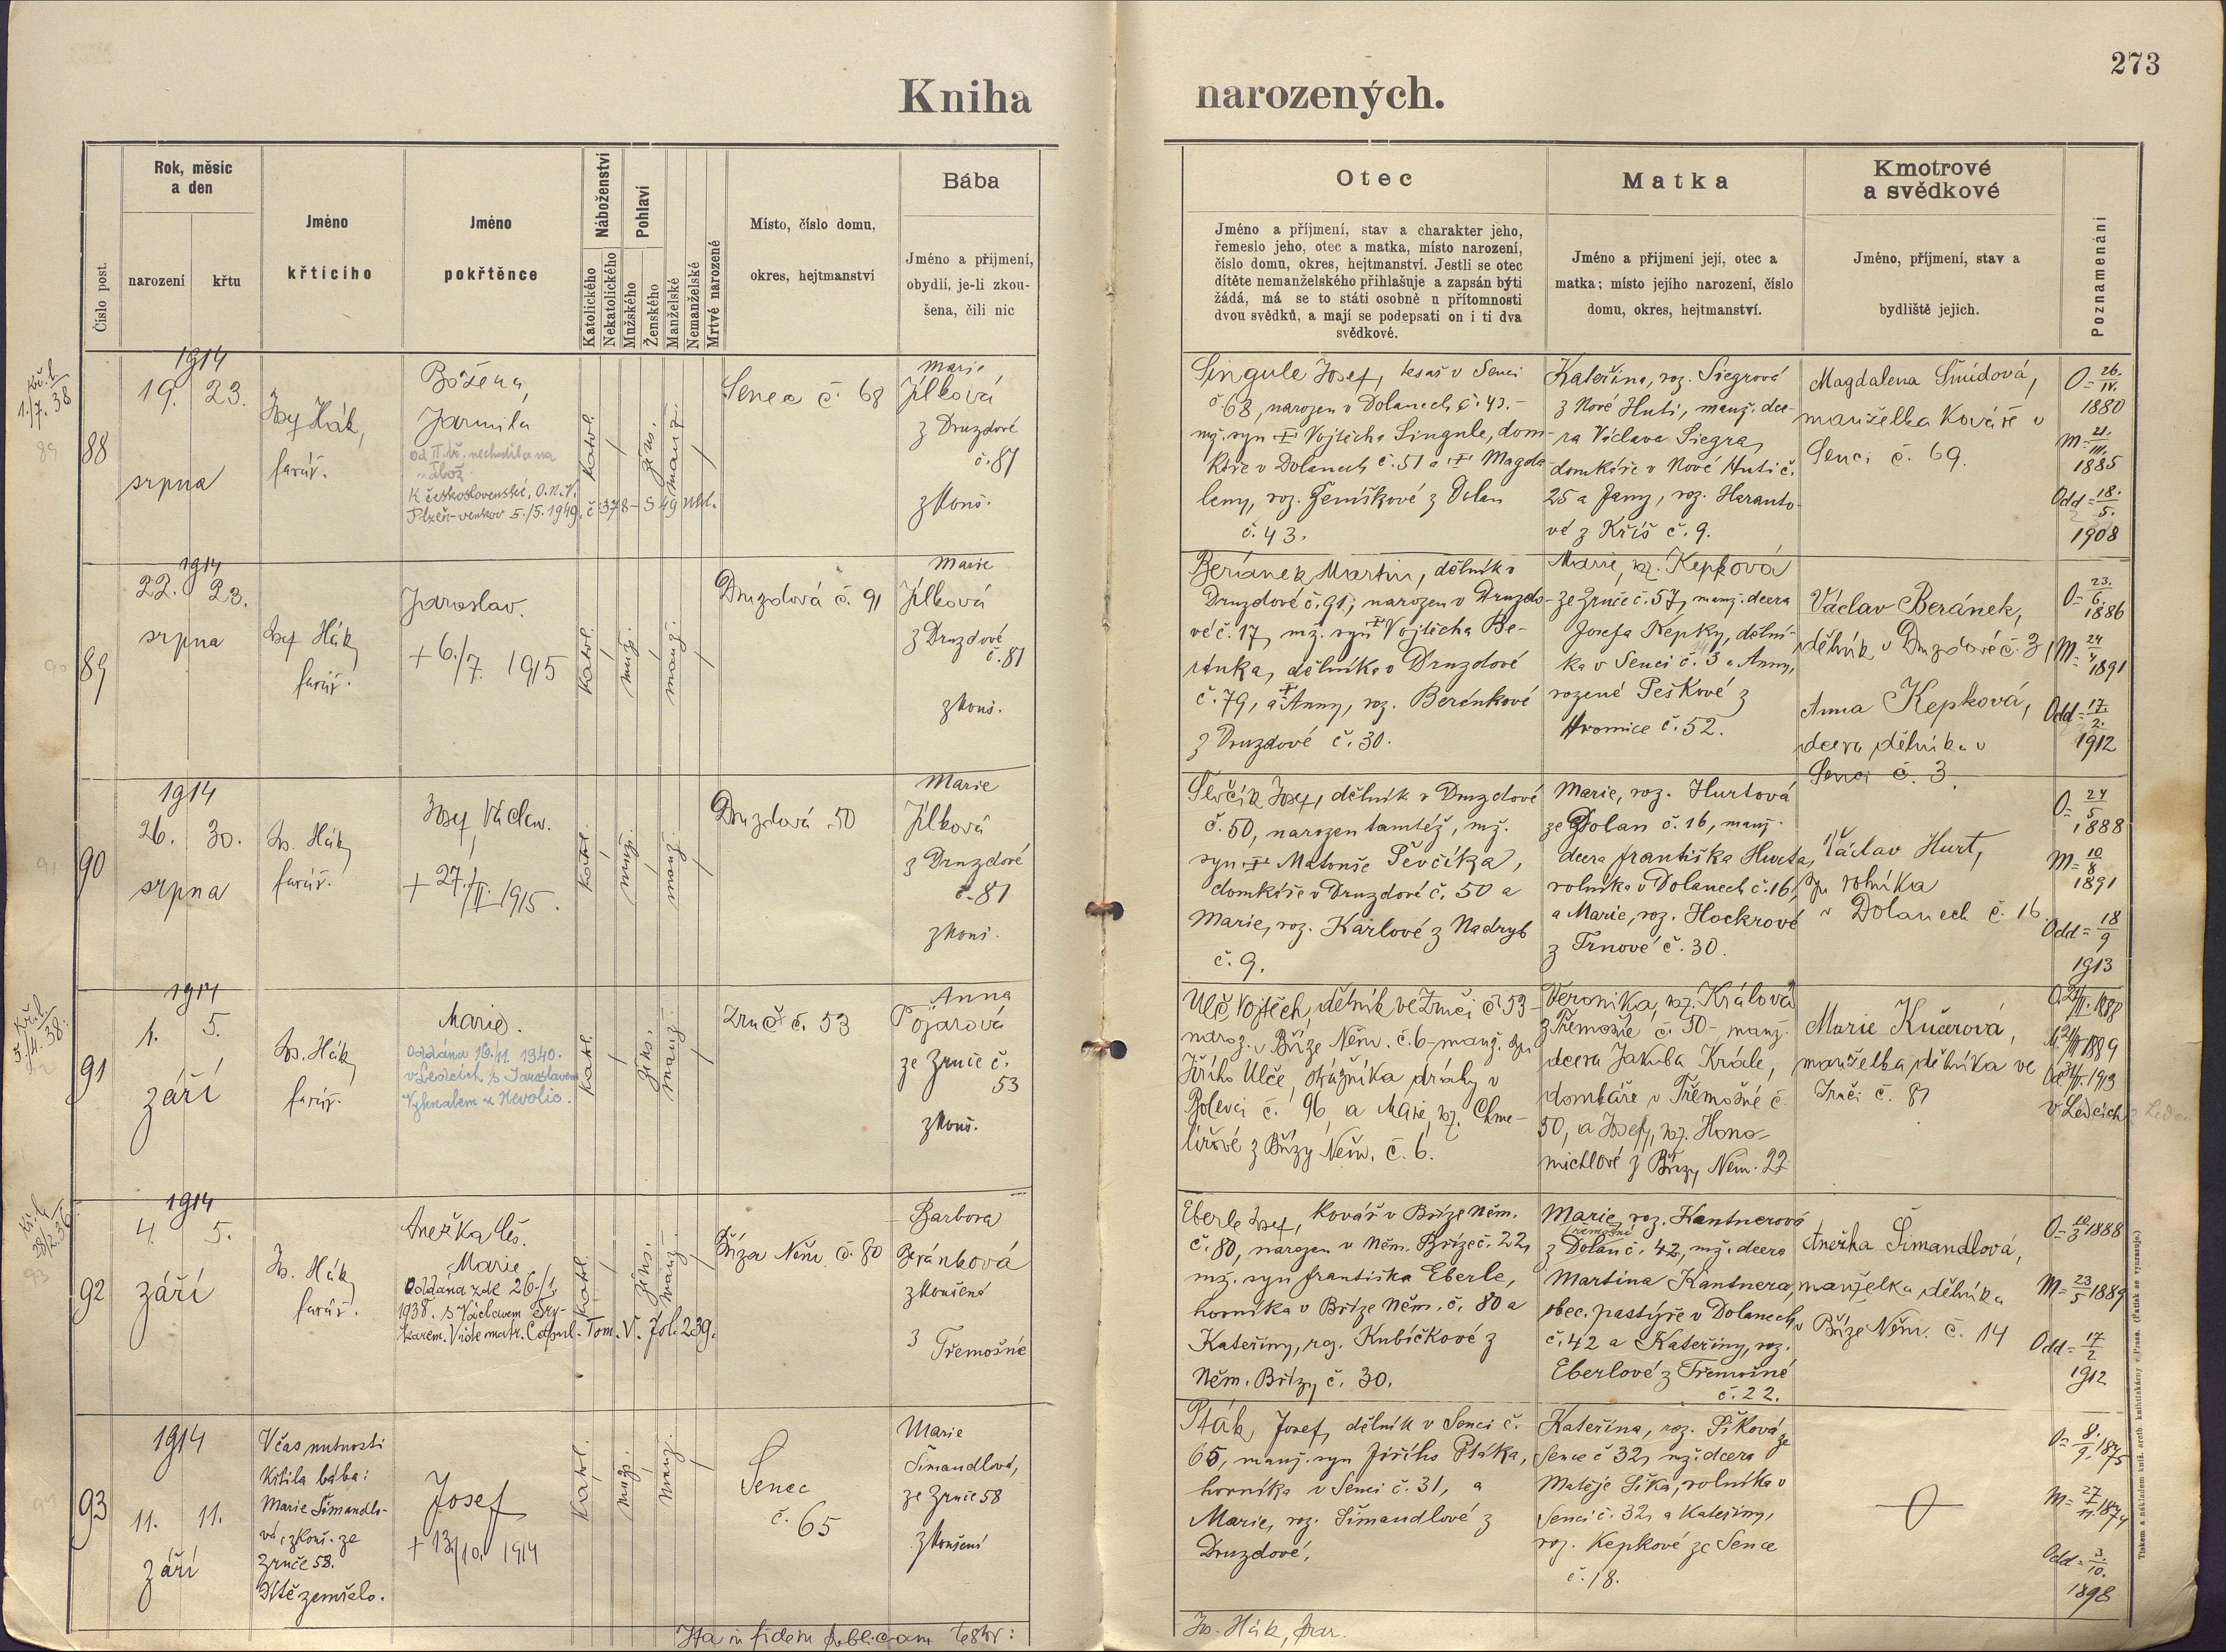 273
Kniha narozených.
Číslo post.
Rok, měsíc
a den
narození
křtu
Jméno
křtícího
Jméno
pokřtěnce
Náboženství
Katolického
Nekatolického
Pohlaví
Mužského
Ženského
Manželské
Nemanželské
Mrtvé narozené
Místo, číslo domu,
okres, hejtmanství
Bába
Jméno a přijmení,
obydlí, je-li zkou-
šena, čili nic
Otec
Jméno a příjmení, stav a charakter jeho,
řemeslo jeho, otec a matka, místo narození,
číslo domu, okres, hejtmanství. Jestli se otec
dítěte nemanželského přihlašuje a zapsán býti
žádá, má se to státi osobně u přítomnosti
dvou svědků, a mají se podepsati on i ti dva
svědkové.
Matka
Jméno a přijmení její, otec a
matka; místo jejího narození, číslo
domu, okres, hejtmanství.
Kmotrové
a svědkové
Jméno, příjmení, stav a
bydliště jejich.
Poznamenání
Kř. l.
1./7. 38
89
88
1914
19. 23.
srpna
Josef Hák,
farář.
Božena,
Jarmila
od II. tř. nechodila na
nábož.
K československé, O.N.V.
Plzeň-venkov 5./5. 1949. č. 378-5 49 
katol.
žens.
manž.
Senec č. 68
Marie
Jílková
z Druzdové
č. 81
zkouš.
Singule Josef, tesař v Senci
č 68, narozen v Dolanech č. 43.-
mž. syn † Vojtěcha Singule, dom-
káře v Dolanech č. 51 a † Magda-
leny, roz. Jeníškové z Dolan
č. 43.
Kateřina, roz. Siegrová
z Nové Huti, manž. dce-
ra Václava Siegra,
domkáře v Nové Huti č.
25 a Jany, roz. Haranto-
vé z Kříš č. 9.
Magdalena Šmídová,
manželka Kováře v
Senci č. 69.
O= 26./IV.
1880
M= 21./III.
1885
Odd= 18./5.
1908
90
89
1914
22. 23.
srpna
Josef Hák,
farář.
Jaroslav.
+ 6./7. 1915
katol.
muž.
manž.
Druzdová č. 91
Marie
Jílková
z Druzdové
č. 81
zkouš.
Beránek Martin, dělník v
Druzdové č. 91, narozen v Druzdo-
vé č. 17, mž. syn † Vojtěcha Be-
ránka, dělníka v Druzdové
č. 79, a † Anny, roz. Beránkové
z Druzdové č. 30.
Marie, roz. Kepková
ze Zruče č. 57, manž. dcera
Josefa Kepky, dělní-
ka v Senci č. 3 a Anny,
rozené Peškové z
Hromice č. 52.
Václav Beránek,
dělník v Druzdové č. 31
Anna Kepková,
dcera dělníka v
Senci č. 3.
O= 23./6.
1886
M= 24/4
1891
Odd= 17./2.
1912
91
90
1914
26. 30.
srpna
Jos. Hák,
farář.
Josef, Václav.
+ 27./II. 1915.
katol.
muž.
manž.
Druzdová 50
Marie
Jílková
z Druzdové
č. 81
zkouš.
Ševčík Josef, dělník v Druzdové
č. 50, narozen tamtéž, mž.
syn † Matouše Ševčíka,
domkáře v Druzdové č. 50 a
Marie, roz. Karlové z Nadryb
č. 9.
Marie, roz. Hurtová
ze Dolan č. 16, manž.
dcera Františka Hurta,
rolníka v Dolanech č. 16,
a Marie, roz. Hockrové
z Trnové č. 30.
Václav Hurt,
syn rolníka
v Dolanech č. 16.
O= 24/5
1888
M= 10/8
1891
Odd= 18/9
1913
Kř. l.
5./4. 38.
91
1914
1. 5.
září
Jos. Hák,
farář.
Marie.
Oddána 16./11. 1940.
v Ledcích s Jaroslavem
Vyhnalem z Nevolic.
katol.
žens.
manž.
Zruč č. 53
Anna
Pojarová
ze Zruče č.
53
zkouš.
Ulč Vojtěch, dělník ve Zruči č 53-
naroz. v Bříze Něm. č. 6- manž. syn
Jiřího Ulče, strážníka dráhy v
Bolevci č. 96 a Marie, roz. Chme-
lířové z Břízy Něm. č. 6.
Veronika, roz. Králová
z Třemošné č. 50- manž.
dcera Jakuba Krále,
domkáře v Třemošné č.
50, a Josefy, roz. Hono-
michlové z Břízy Něm. 22
Marie Kučerová,
manželka dělníka ve
Zruči č. 81
1888
1889
1913
v Ledcích
Kř. l.
28/2. 36
93
92
1914
4. 5.
září
Jos. Hák,
farář.
Anežka Čes.
Marie
Oddána zde 26./1.
1938. s Václavem Bry-
karem. Vide matr. Copul. Tom. V. fol. 239.
katol.
žens.
manž.
Bříza Něm. č. 80
Barbora
Beránková
zkoušená
z Třemošné
Eberle Josef, kovář v Bříze Něm.
č. 80, narozen v Něm. Bříze č. 22,
mž. syn Františka Eberle,
horníka v Bříze Něm. č. 80 a
Kateřiny, roz. Kubíčkové z
Něm. Břízy č. 30.
Marie, roz. Kantnerová
Třemošné
z Dolan č. 42, mž. dcera
Martina Kantnera,
obec. pastýře v Dolanech
č. 42 a Kateřiny, roz.
Eberlové z Třemošné
č. 22.
Anežka Šimandlová,
manželka dělníka
v Bříze Něm. č. 14
O= 10/3 1888
M= 23/5 1889
Odd= 17/2
1912
93
1914
11. 11.
září
V čas nutnosti
křtila bába:
Marie Šimandlo-
vá, zkouš. ze
Zruče 58.
Dítě zemřelo.
Josef
+ 13./10. 1914
katol.
muž.
manž.
Senec
č. 65
Marie
Šimandlová,
ze Zruče 58
zkoušená
Pták, Josef, dělník v Senci č.
65, manž. syn Jiřího Ptáka,
horníka v Senci č. 31, a
Marie, roz. Šimandlové z
Druzdové.
Kateřina, roz. Šiková ze
Sence č 32, mž. dcera
Matěje Šika, rolníka v
Senci č. 32, a Kateřiny,
roz. Kepkové ze Sence
č. 18.
O= 8./9. 1875
M= 1874
Odd= 3./10.
1898
Ita in fidem publicam testor:
Jos. Hák, far.
Tiskem a nákladem kníž. arcib. knihtiskárny v Praze. (Patisk se vymazuje.)